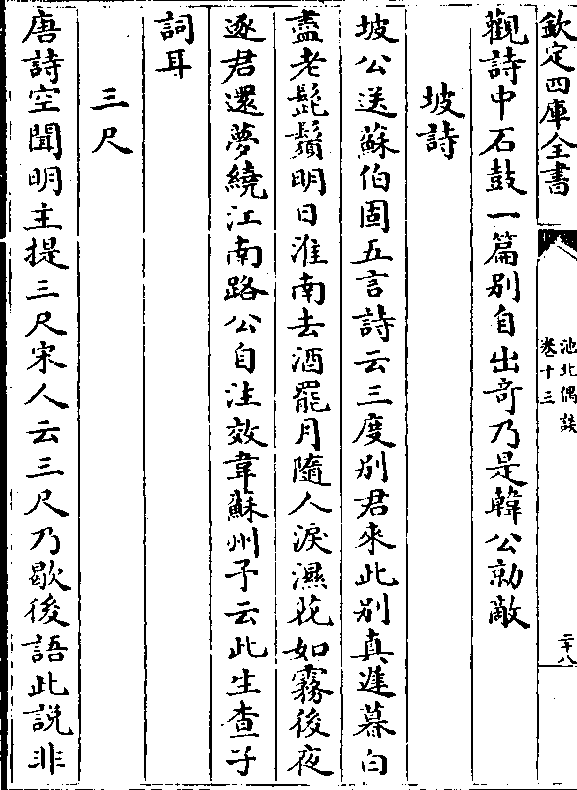 欽定四庫全書
池北偶談
卷十三
二十八
觀詩中石鼓一篇别自出竒乃是韓公勍敵
坡詩
坡公送蘇伯固五言詩云三度别君來此别真遲暮白
盡老髭鬚明日淮南去酒罷月隨人淚濕花如霧後夜
逐君還夢繞江南路公自注效韋蘇州予云此生查子
詞耳
三尺
唐詩空聞明主提三尺宋人云三尺乃歇後語此説非